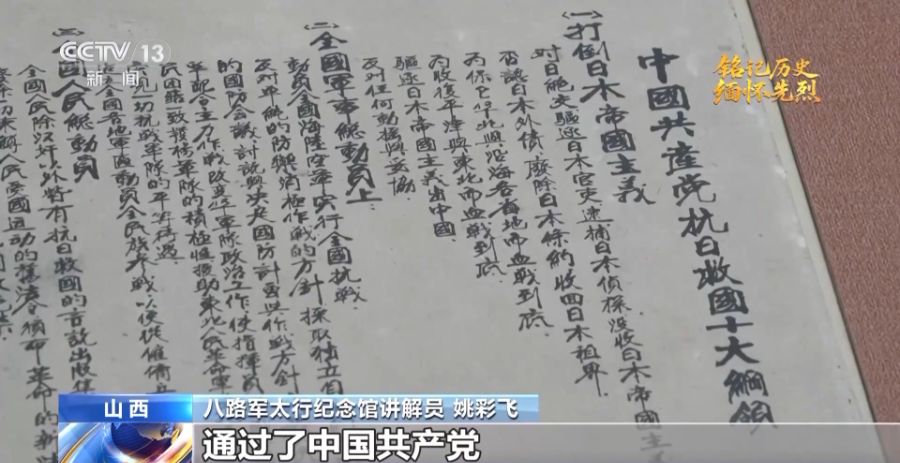 CCTV 13
新闻
铭记历史
缅怀先烈
中國共産党抗日救國十大綱領
(一)打倒日本帝國主義
对日絕交驅逐日本官吏逮捕日本偵探沒收日本帝國主
否認日本外債廢除日本條約收回日本租界
为保卫华北與沿海各省地而血戰到底
为收復平津與東北而血戰到底
驅逐日本帝國主義出中國
反对任何動搖與妥協
(二)全國軍事總動員上:
動員全國海陸空軍实行全國抗戰
反对單純的防禦消極作戰的方針採取獨立自
的國防会議討論與决定國防計畫與作戰方針
軍配合主力作戰改造軍隊政治工作使指揮員
民团結致發揚軍隊的積極性援助東北民革命軍
一切抗戰軍隊的平等待遇
全國各地軍區動員全民族参戰以使從僱傭兵
(三)全國人民總動員
全國人民除汉奸外皆有抗日救國的言說出版集
人民愛國運動的舊 革命的新
山西
八路军太行纪念馆讲解员 姚彩飞
通过了中国共产党